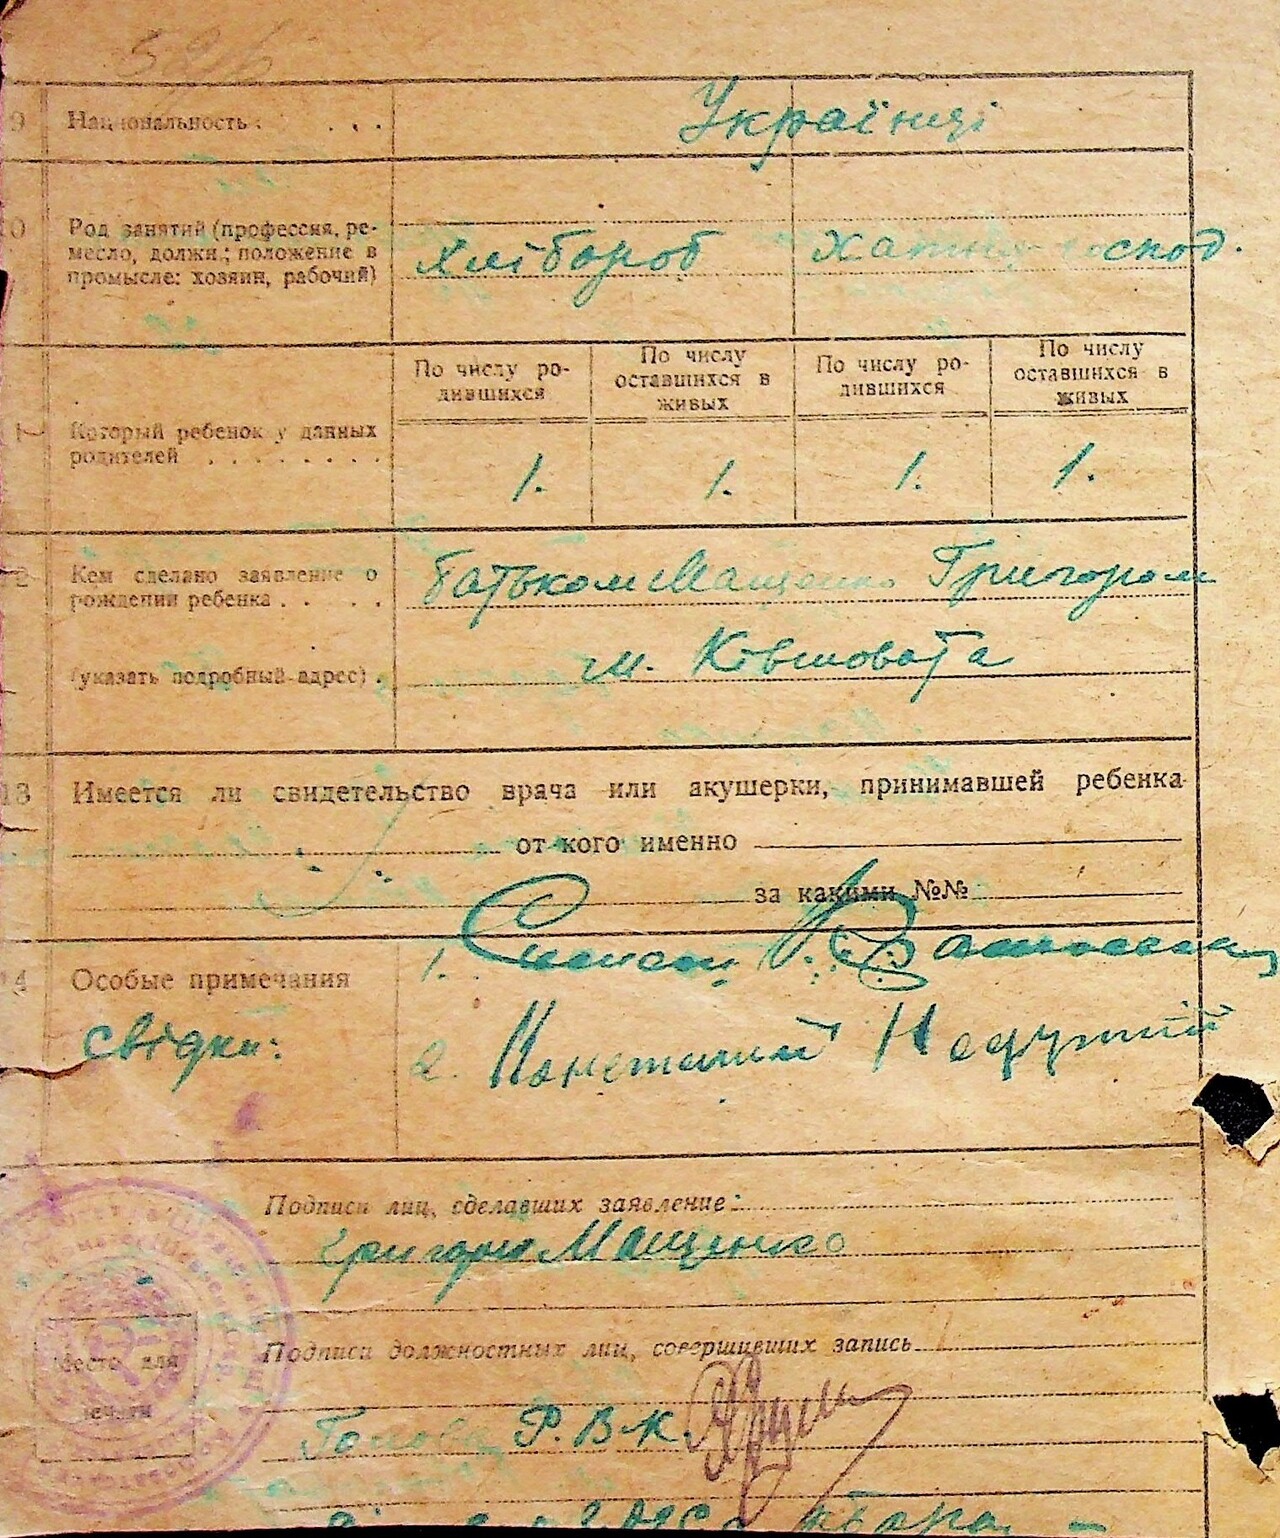 9 Национальность . . . Українці
10 Род занятий (профессия, ре-
месло, должн.; положение в
промысле: хозяин, рабочий)
Хлібороб Хатня господ.
По числу ро-
дившихся
По числу
оставшихся в
живых
По числу ро-
дившихся
По числу
оставшихся в
живых
Который ребенок у данных
родителей . . . . . . . .
1. 1. 1. 1.
Кем сделано заявление о
рождении ребенка . . . .
батьком Мащенко Григором
(указать подробный адрес) . м. Ківшовата
13 Имеется ли свидетельство врача или акушерки, принимавшей ребенка
от кого именно
за какими №№
14 Особые примечания
свідки:
1.
2.
Подписи лиц, сделавших заявление:
Григорій Мащенко
Подписи должностных лиц, совершивших запись
Место для
печати
Голова Р.В.К.